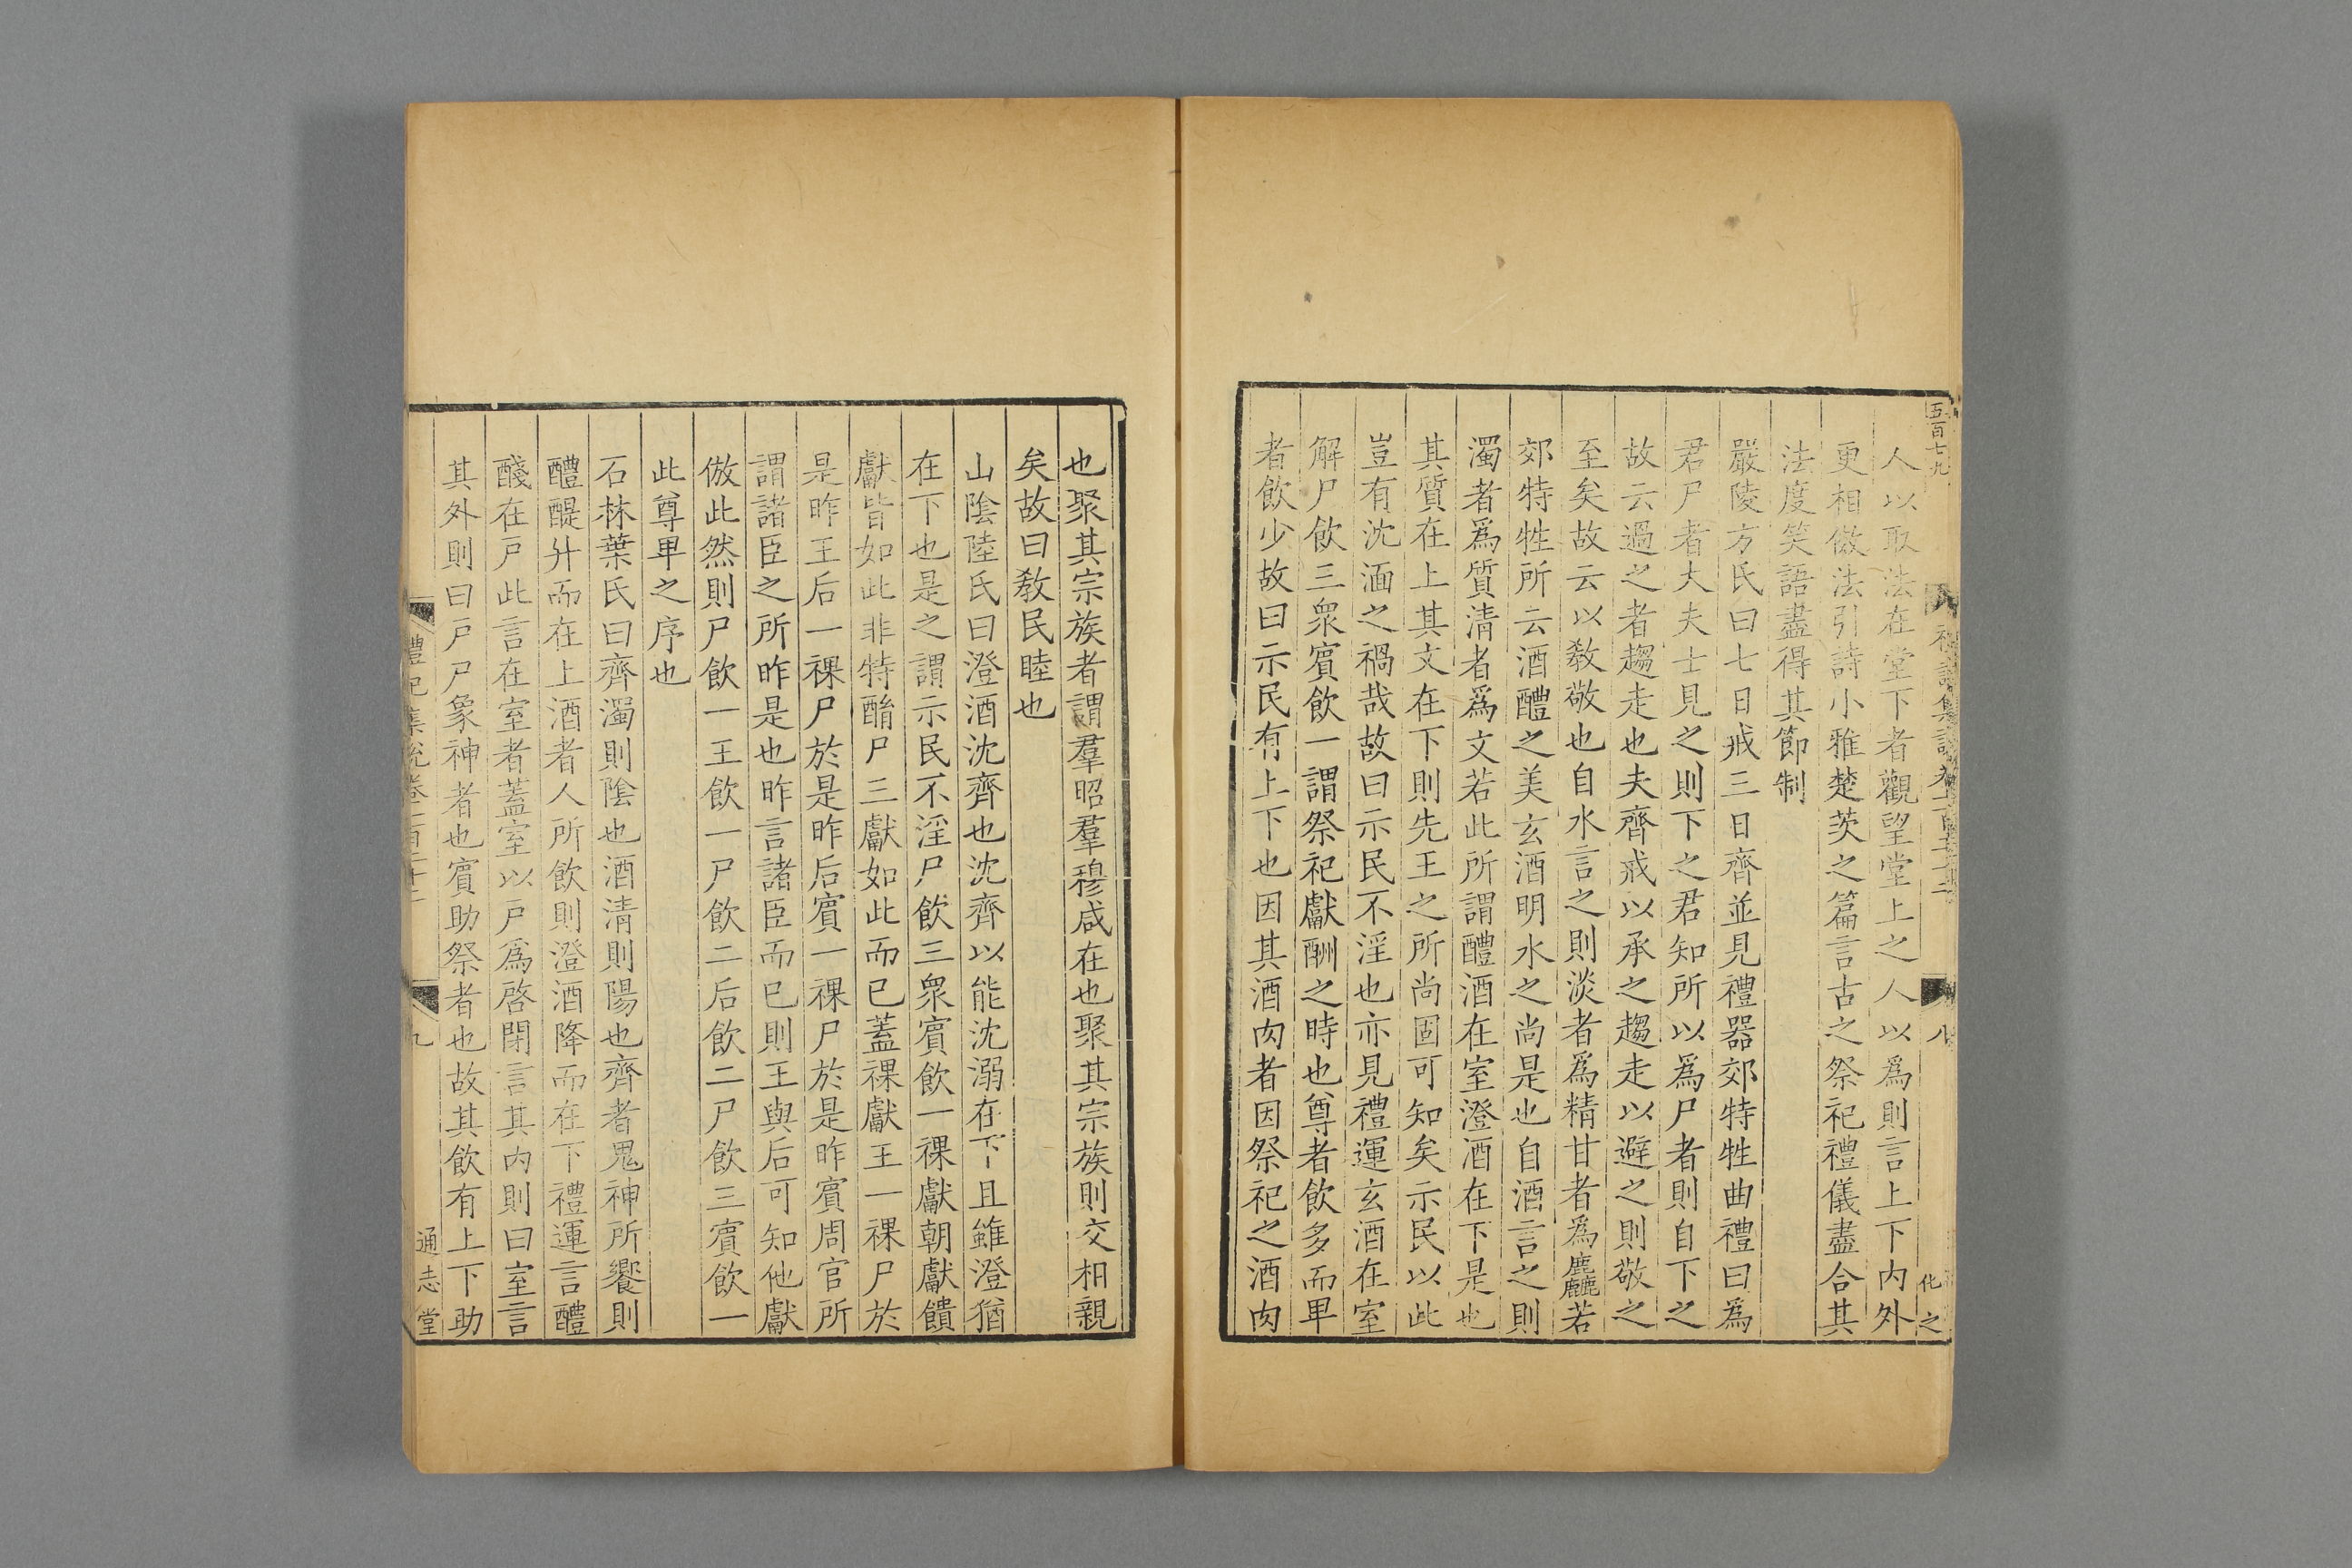 五百七九
八
化之
人以取法在堂下者觀望堂上之人以爲則言上下内外
更相倣法引詩小雅楚茨之篇言古之祭祀禮儀盡合其
法度笑語盡得其節制
嚴陵方氏曰七日戒三日齊並見禮器郊特牲曲禮曰爲
君尸者大夫士見之則下之君知所以爲尸者則自下之
故云過之者趨走也夫齊戒以承之趨走以避之則敬之
至矣故云以敎敬也自水言之則淡者爲精甘者爲麤若
郊特牲所云酒醴之美玄酒明水之尚是也自酒言之則
濁者爲質清者爲文若此所謂醴酒在室澄酒在下是也
其質在上其文在下則先王之所尚固可知矣示民以此
豈有沈湎之禍哉故曰示民不淫也亦見禮運玄酒在室
解尸飲三衆賓飲一謂祭祀獻酬之時也尊者飲多而卑
者飲少故曰示民有上下也因其酒肉者因祭祀之酒肉
也聚其宗族者謂羣昭羣穆咸在也聚其宗族則交相親
矣故曰敎民睦也
山陰陸氏曰澄酒沈齊也沈齊以能沈溺在下且雖澄猶
在下也是之謂示民不淫尸飲三衆賓飲一祼獻朝獻饋
獻皆如此非特酳尸三獻如此而已蓋祼獻王一祼尸於
是昨王后一祼尸於是昨后賓一祼尸於是昨賓周官所
謂諸臣之所昨是也昨言諸臣而已則王與后可知他獻
倣此然則尸飲一王飲一尸飲二后飲二尸飲三賓飲一
此尊卑之序也
石林葉氏曰齊濁則陰也酒清則陽也齊者鬼神所饗則
醴醍升而在上酒者人所飲則澄酒降而在下禮運言醴
醆在戸此言在室者蓋室以戸爲啓閉言其内則曰室言
其外則曰戸尸象神者也賓助祭者也故其飲有上下助
禮記集說卷一百二十二
九
通志堂